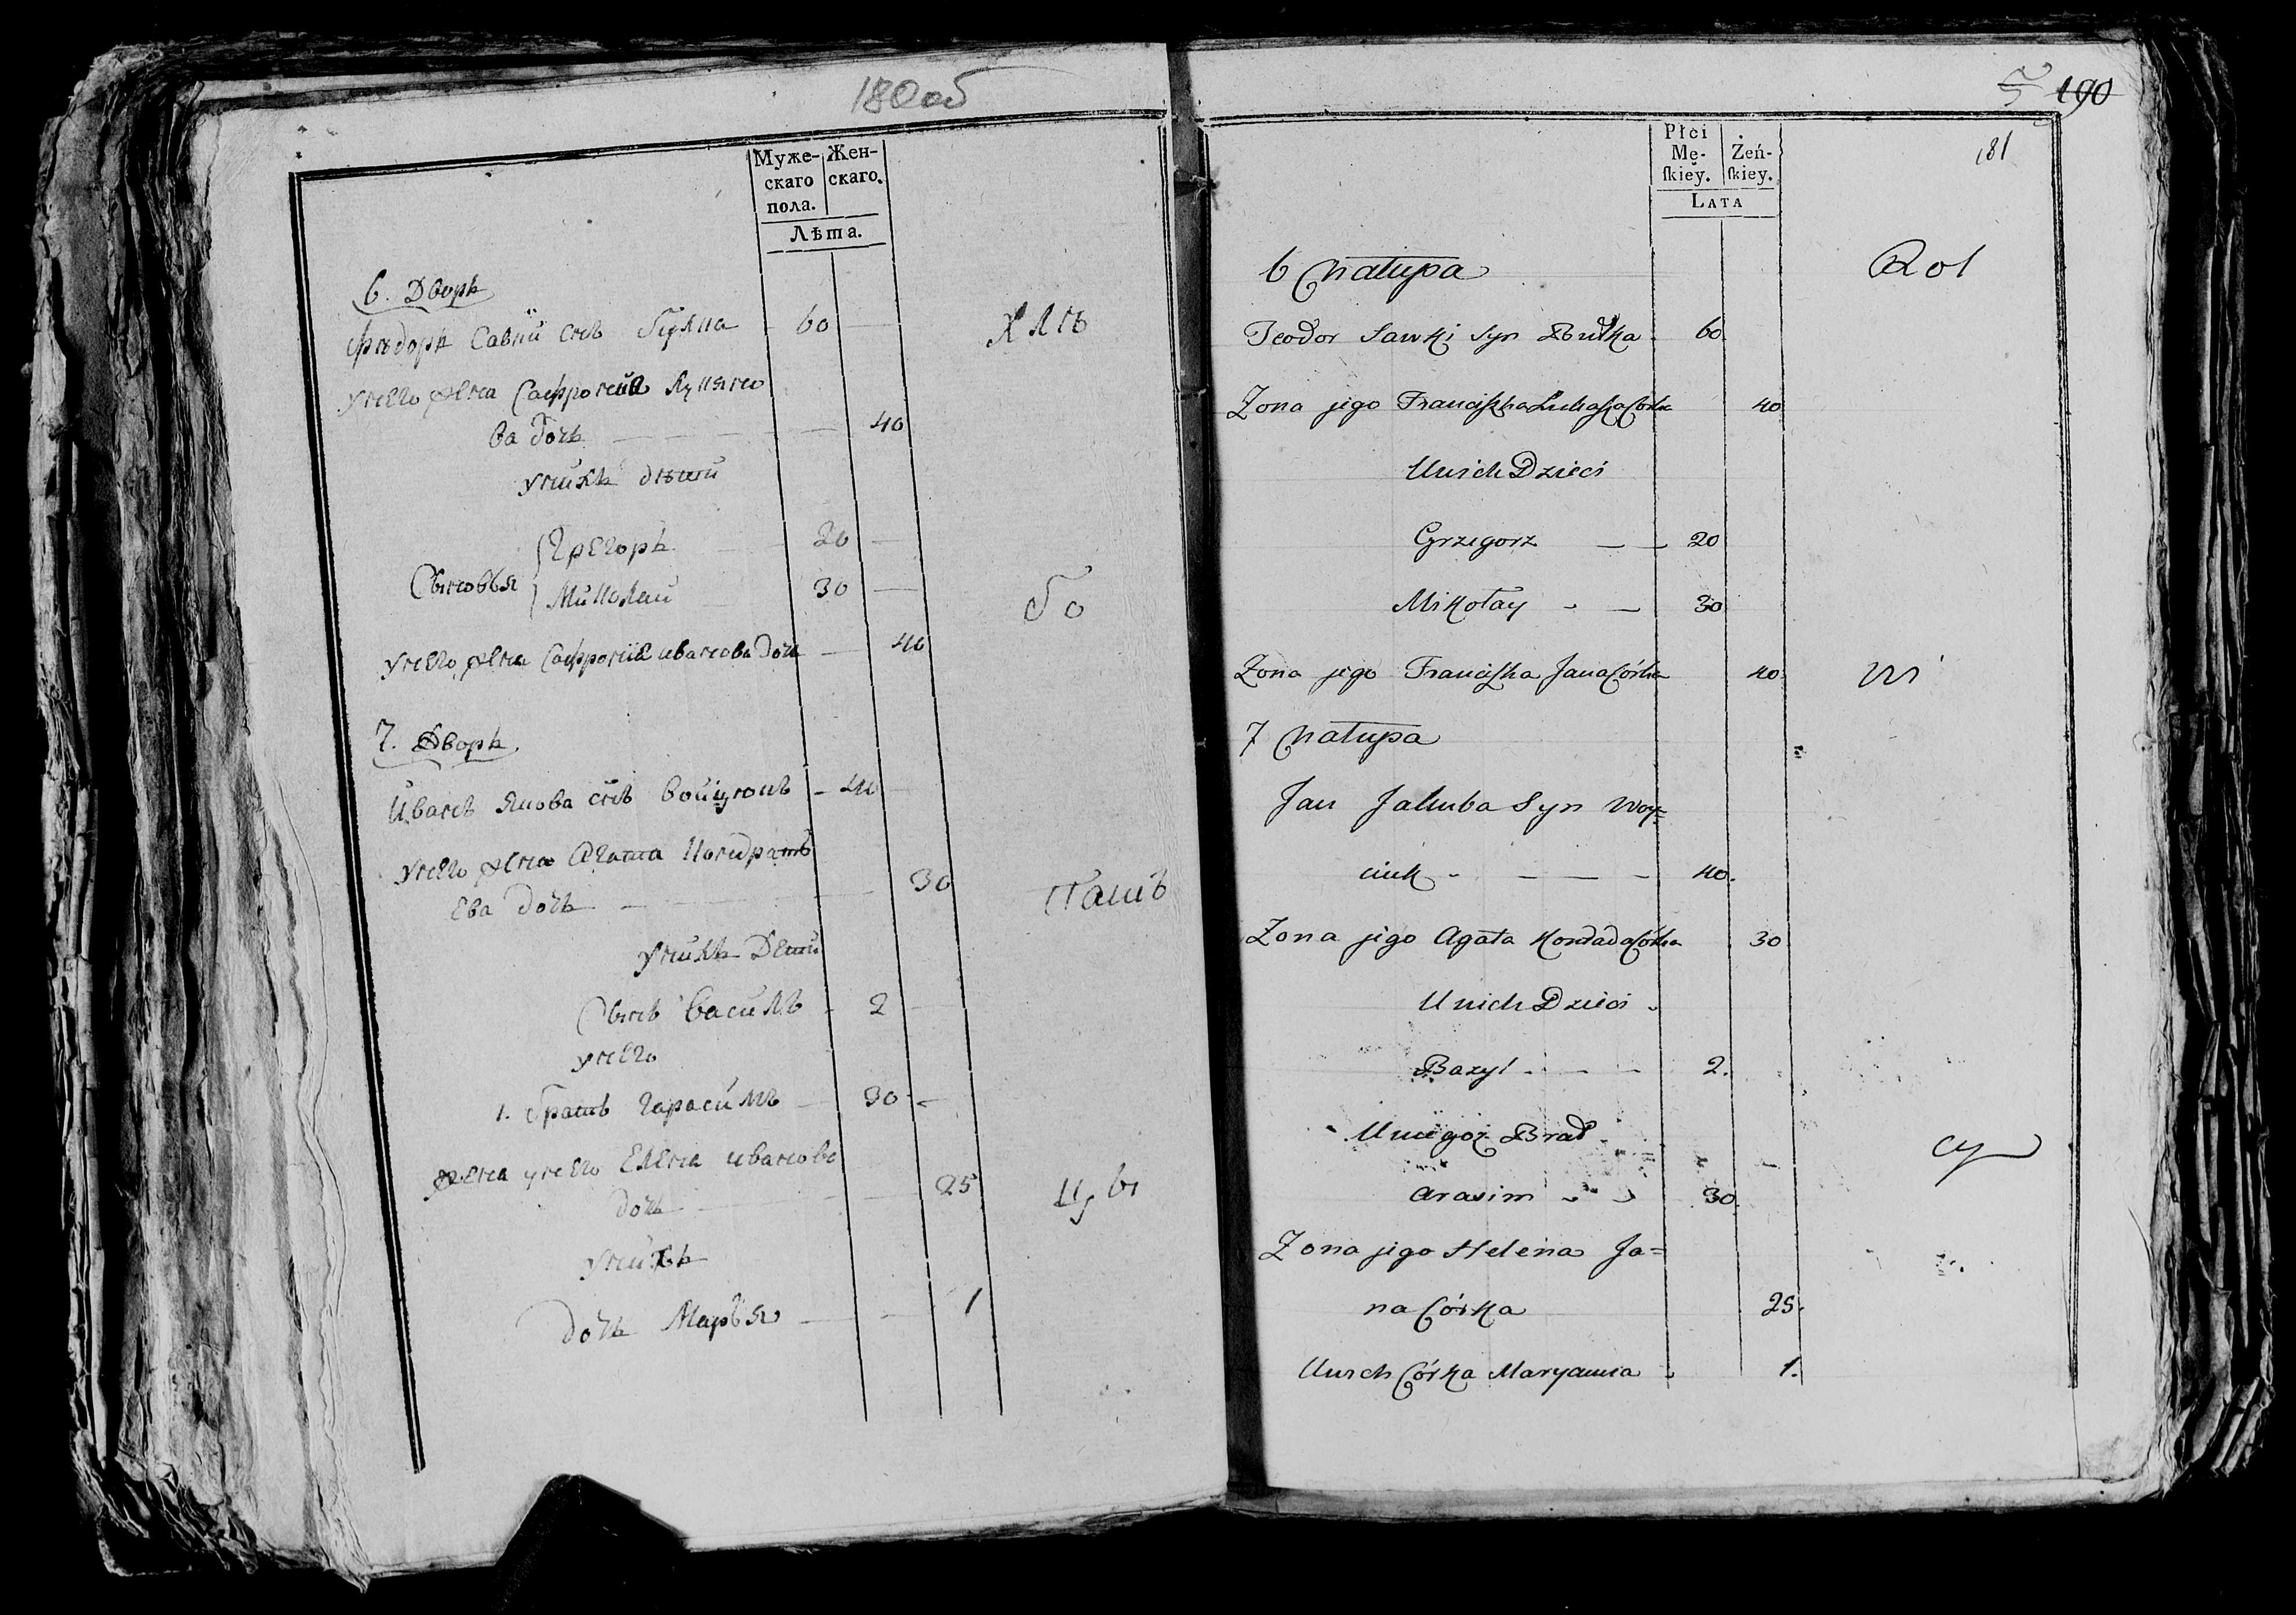 180об
Муже- Жен-
скаго скаго.
пола.
Лѣта.
6. Дворъ
Фѣдоръ Савки снъ Булка 60
хлѣ
Унего жена Софронiя Лукяно
ва дочь 40
Унихъ дѣти
Грегоръ 20
Сыновья
Миколай 30
бо
Унего жена Софронiя иванова дочь 40
7. Дворъ.
Иванъ якова снъ войцюкъ 40
Унего жена Агата Кондрать
Ева дочь 30
пашъ
Унихъ Дети
Сынъ василь 2
унего
1. братъ гарасимъ 30
жена унего Елена иванова
дочь 25
цы
Унихъ
дочь Марья 1
190
Płci
Mę- Żeń-
ſkiey. ſkiey.
LATA
181
6 Chałupa
Rol
Teodor Sawki Syn Bułka 60
Zona jego Franciszka Łukasza Córka 40
Unich Dzieci
Grzegorz 20
Mikołay 30
Zona jego Franciszka Jana Córka 40
ni
7 Chałupa
Jan Jakuba Syn Woy=
ciuk 40.
Zona jego Agata Kondrada Córka 30
Unich Dzieci
Bazyl 2.
Uniegoż Brat
cy
Arasim 30
Zona jego Helena Ja=
na Córka 25.
Unich Córka Maryanna 1.